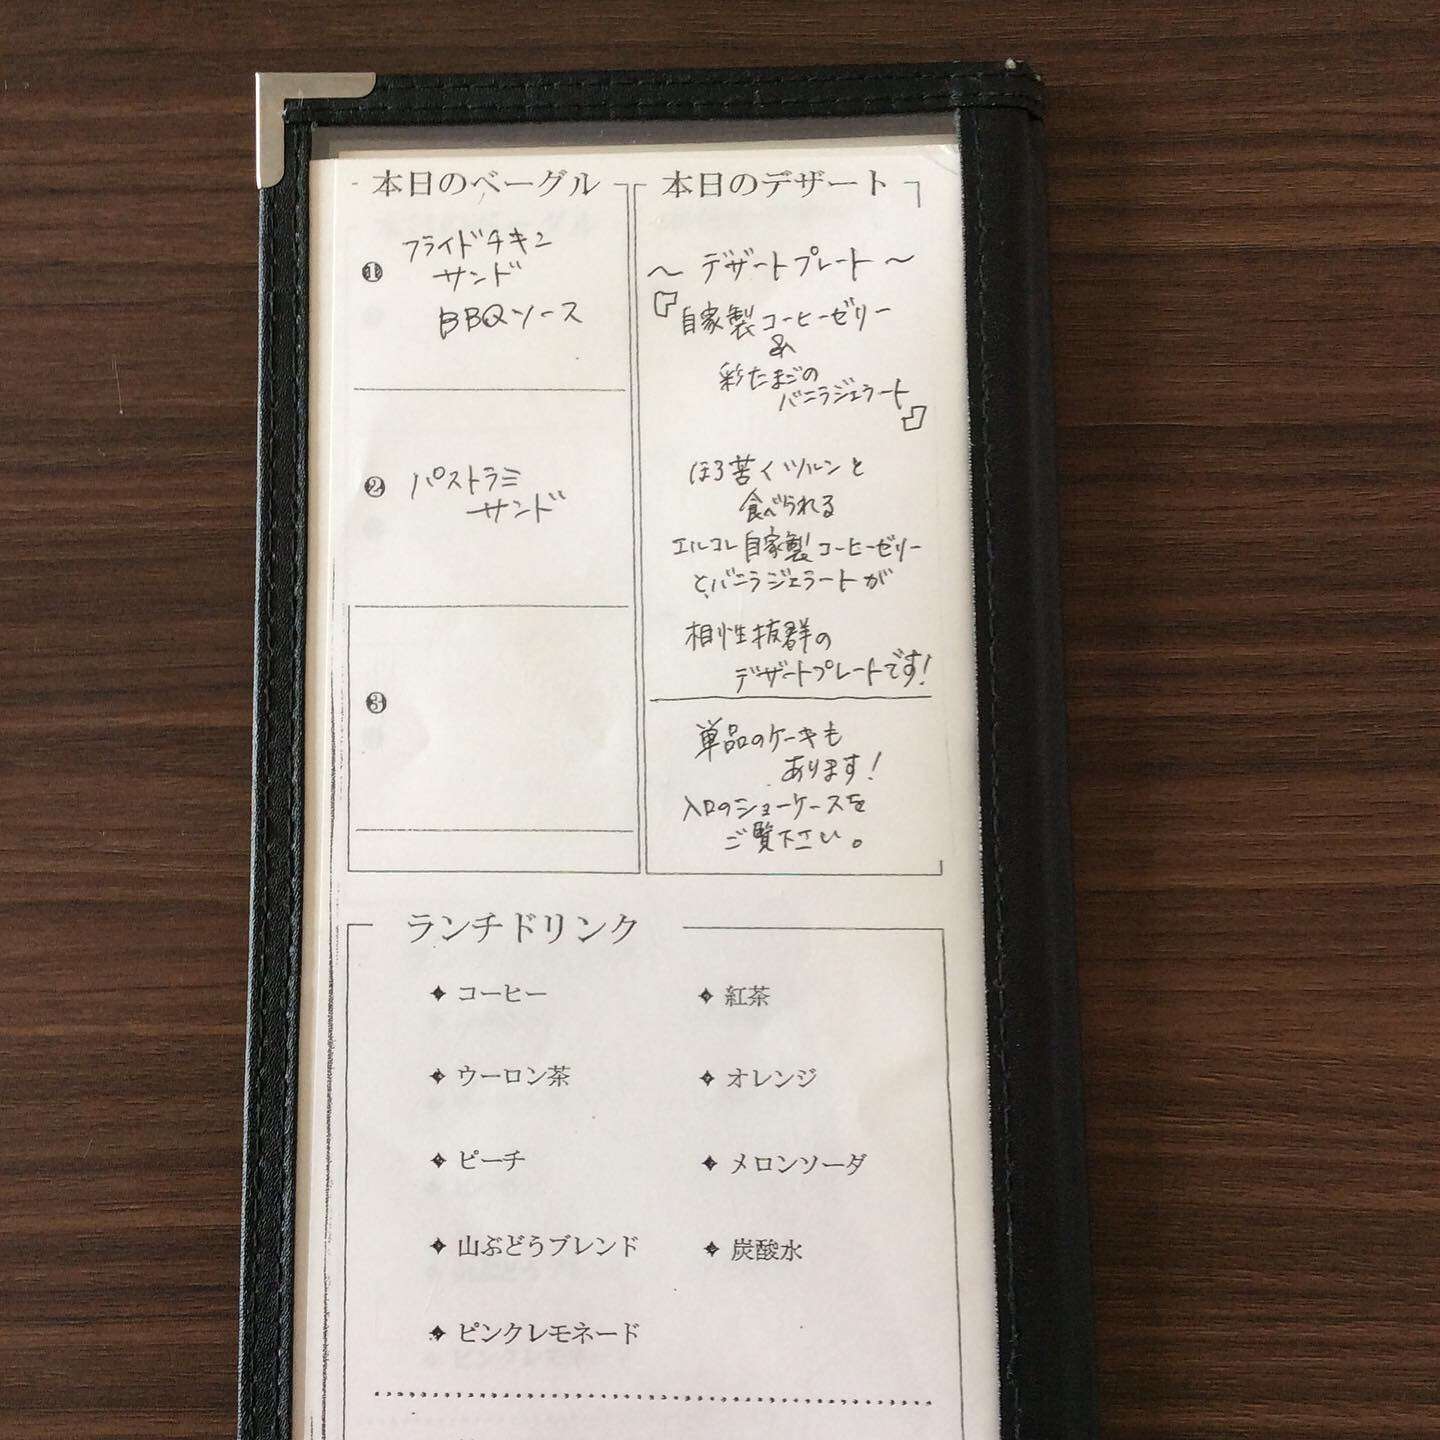 本日のベーグル
❶ フライドチキン
サンド
BBQソース
❷ パストラミ
サンド
❸
本日のデザート
〜 デザートプレート 〜
『自家製コーヒーゼリー
&
彩たまごの
バニラジェラート』
ほろ苦くツルンと
食べられる
エルコレ自家製コーヒーゼリー
とバニラジェラートが
相性抜群の
デザートプレートです!
単品のケーキも
あります!
入口のショーケースを
ご覧下さい。
ランチドリンク
コーヒー
紅茶
ウーロン茶
オレンジ
ピーチ
メロンソーダ
山ぶどうブレンド
炭酸水
ピンクレモネード